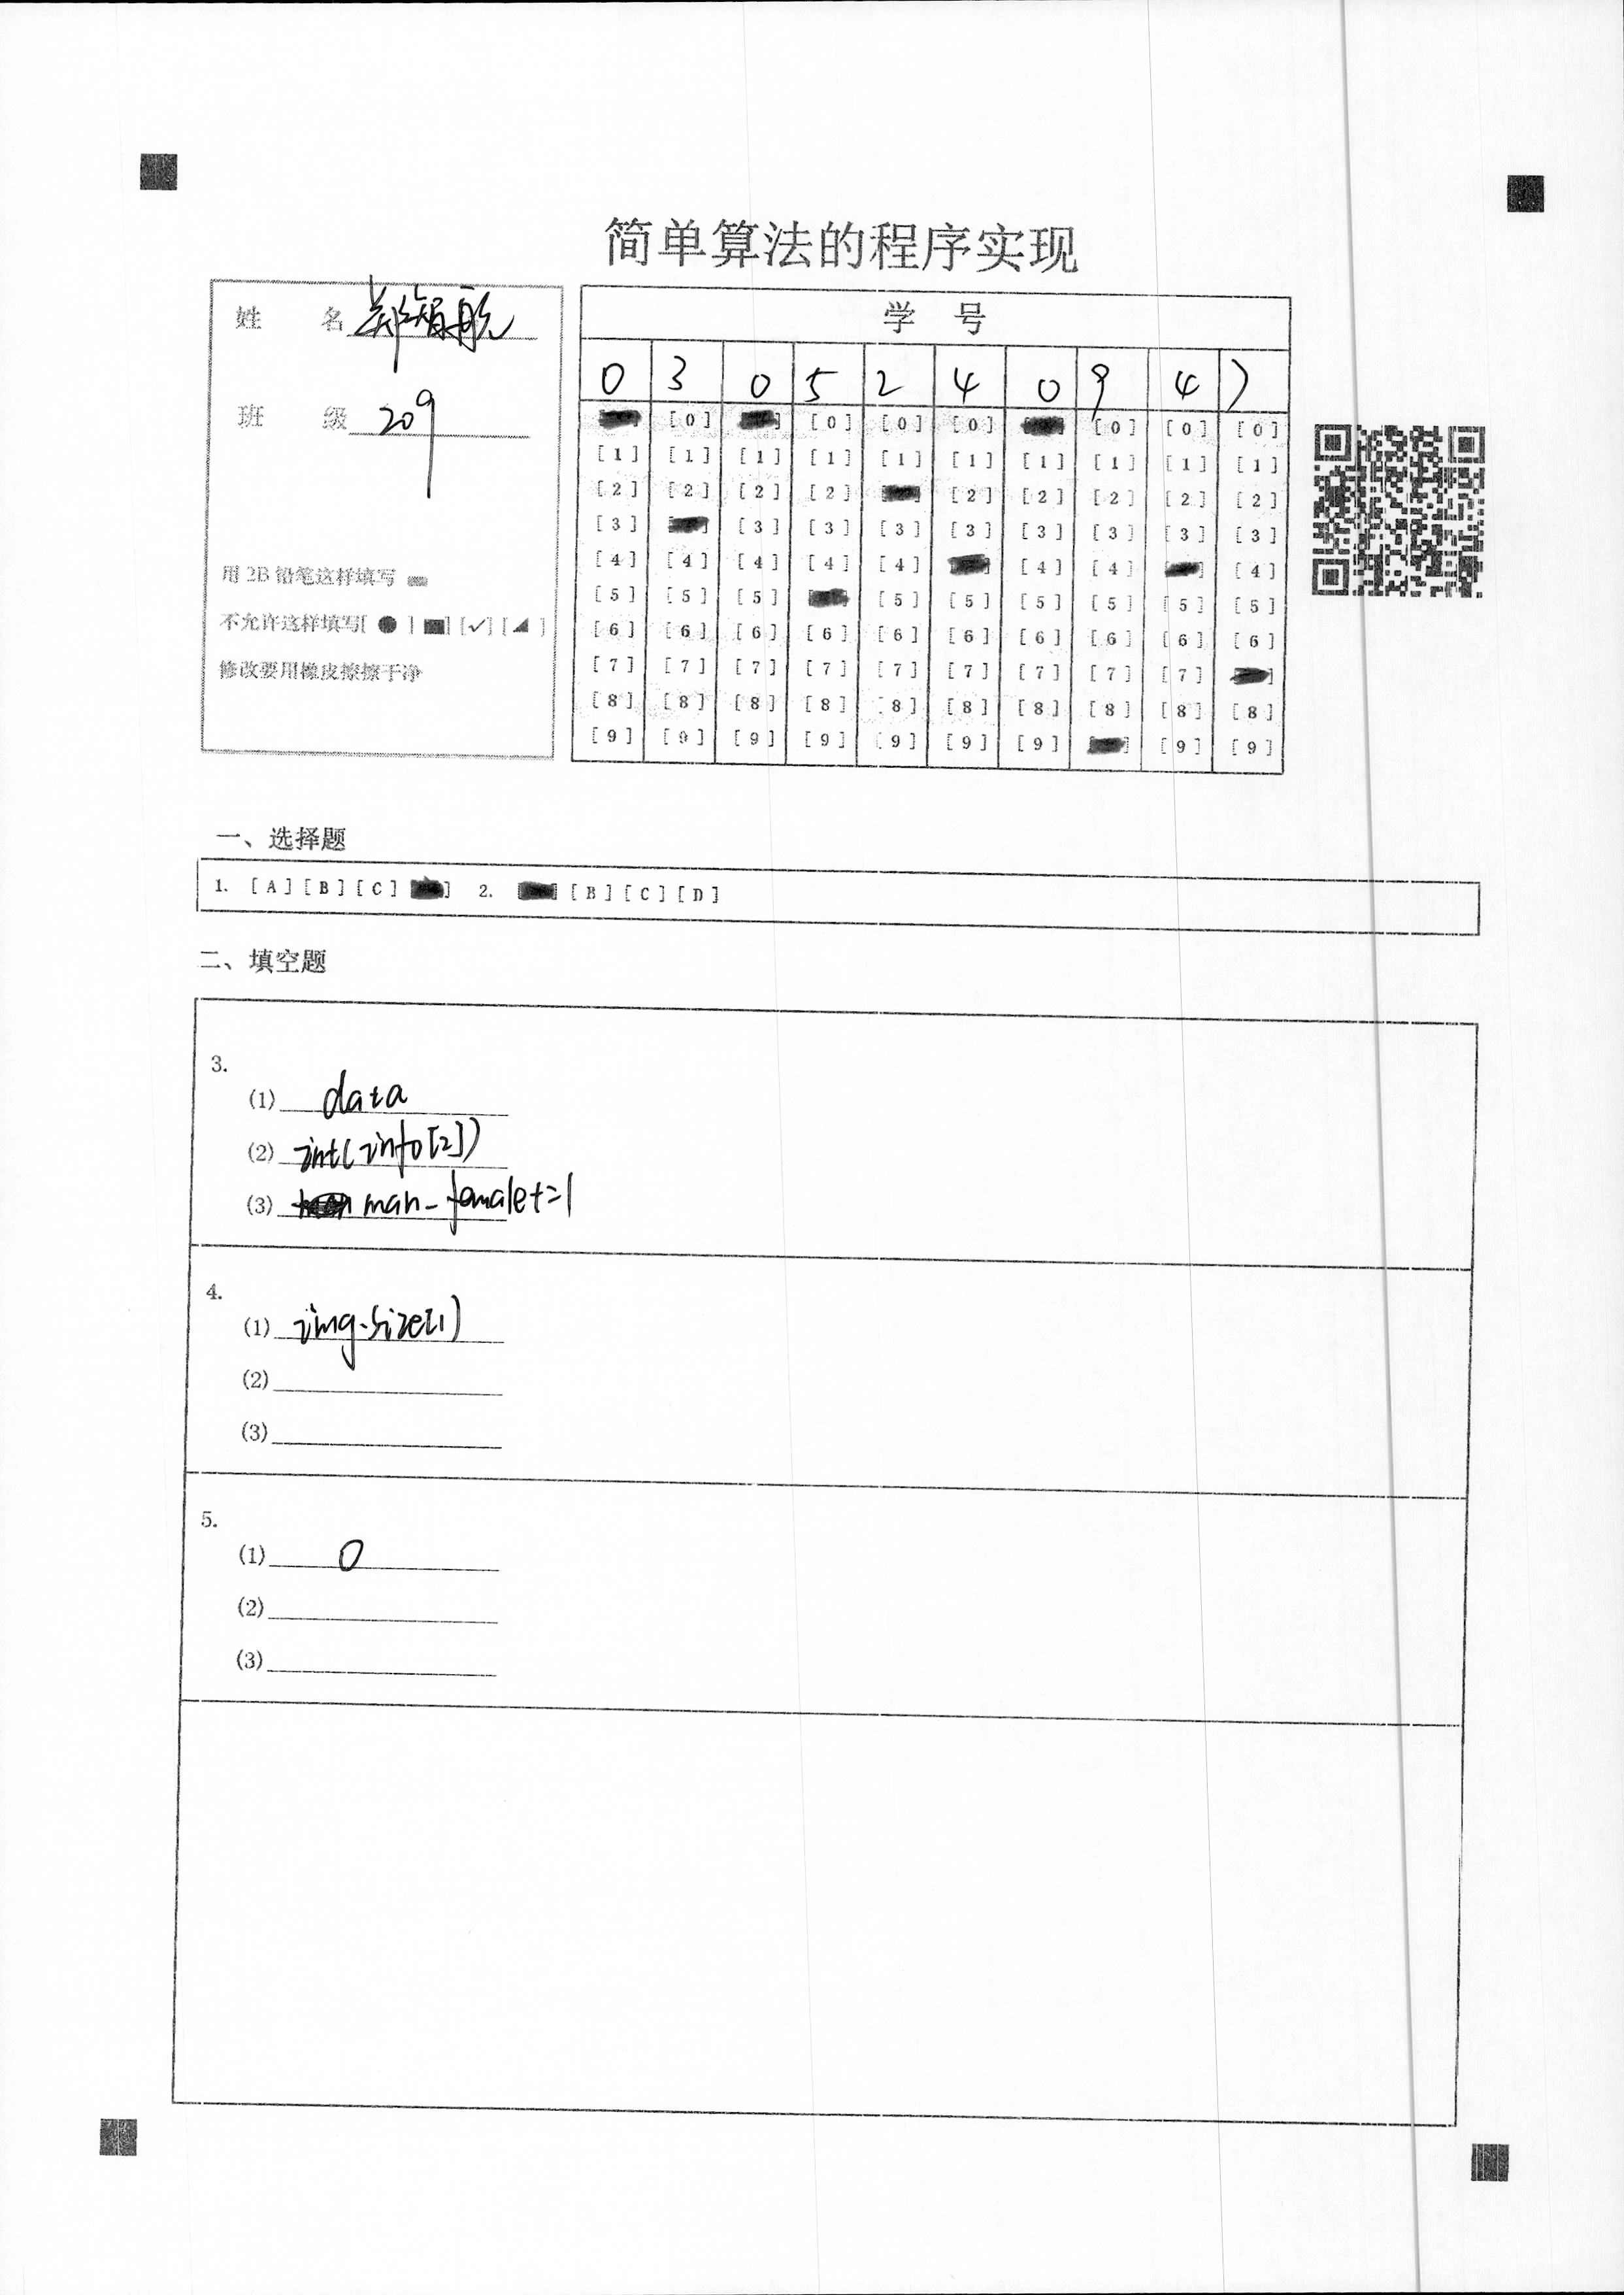 简单算法的程序实现
姓 名 郑智航
班 级 209
用 2B 铅笔这样填写
不允许这样填写[ ● ] [■] [✓] [◢ ]
修改要用橡皮擦擦干净
学 号
0 3 0 5 2 4 0 9 4 7
[0] [0] [0] [0] [0] [0] [0]
[1] [1] [1] [1] [1] [1] [1] [1] [1] [1]
[2] [2] [2] [2] [2] [2] [2] [2] [2]
[3] [3] [3] [3] [3] [3] [3] [3] [3]
[4] [4] [4] [4] [4] [4] [4] [4]
[5] [5] [5] [5] [5] [5] [5] [5] [5]
[6] [6] [6] [6] [6] [6] [6] [6] [6] [6]
[7] [7] [7] [7] [7] [7] [7] [7] [7]
[8] [8] [8] [8] [8] [8] [8] [8] [8] [8]
[9] [9] [9] [9] [9] [9] [9] [9] [9]
一、选择题
1. [A] [B] [C] 2. [B] [C] [D]
二、填空题
3.
(1) data
(2) int(info[2])
(3) man-female+=1
4.
(1) img.size[1]
(2)
(3)
5.
(1) 0
(2)
(3)